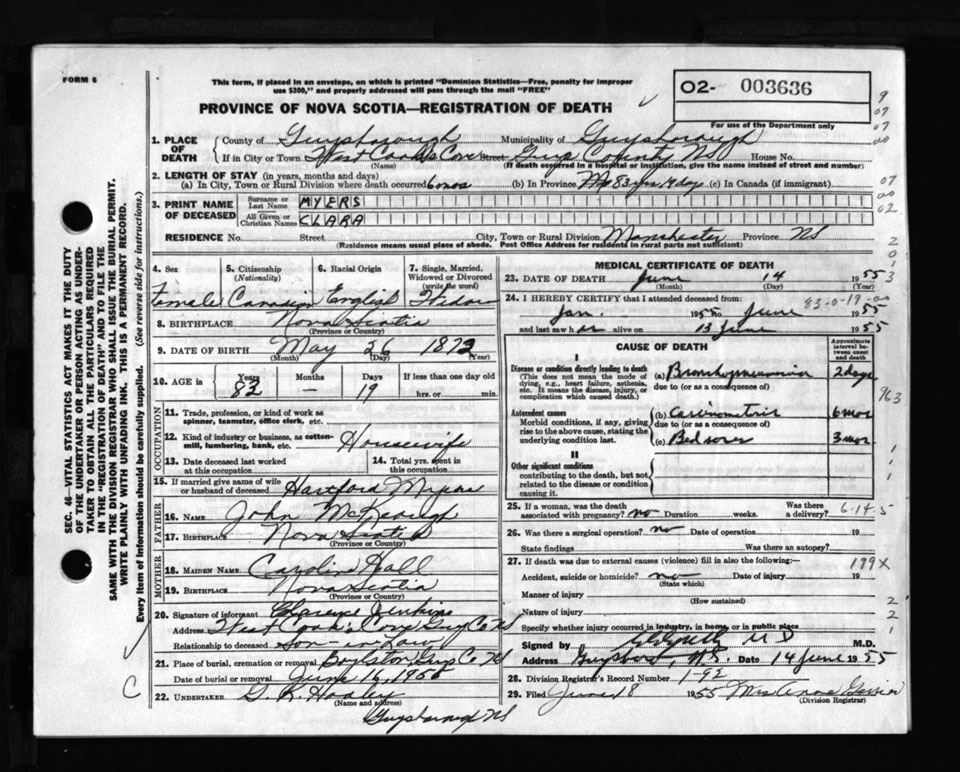 FORM 6
This form, if placed in an envelope, on which is printed "Dominion Statistics—Free, penalty for improper
use $300," and properly addressed will pass through the mail "FREE"
O2- 003636
For use of the Department only
PROVINCE OF NOVA SCOTIA—REGISTRATION OF DEATH
1. PLACE OF DEATH County of Guysborough Municipality of Guysborough
If in City or Town West Cook's Cove Street Guys County NS House No.
(Name) (If death occurred in a hospital or institution, give the name instead of street and number)
2. LENGTH OF STAY (in years, months and days)
(a) In City, Town or Rural Division where death occurred 6 mos (b) In Province 83 yrs 19 days (c) In Canada (if immigrant)
3. PRINT NAME OF DECEASED Surname or Last Name MYERS
All Given or Christian Names CLARA
RESIDENCE No. Street City, Town or Rural Division Manchester Province NS
(Residence means usual place of abode. Post Office Address for residents in rural parts not sufficient)
4. Sex 5. Citizenship (Nationality) 6. Racial Origin 7. Single, Married, Widowed or Divorced (write the word)
Female Canadian English Widow
8. BIRTHPLACE Nova Scotia
(Province or Country)
9. DATE OF BIRTH May 26 1872
(Month) (Day) (Year)
10. AGE in Years Months Days If less than one day old
83 — 19 hrs. or min.
OCCUPATION
11. Trade, profession or kind of work as spinner, teamster, office clerk, etc.
12. Kind of industry or business, as cotton-mill, lumbering, bank, etc. Housewife
13. Date deceased last worked at this occupation 14. Total yrs. spent in this occupation
15. If married give name of wife or husband of deceased Hartford Myers
FATHER
16. NAME John McKeough
17. BIRTHPLACE Nova Scotia
(Province or Country)
MOTHER
18. MAIDEN NAME Caroline Hall
19. BIRTHPLACE Nova Scotia
(Province or Country)
20. Signature of informant Clarence Jenkins
Address West Cook's Cove Guy Co NS
Relationship to deceased Son-in-Law
21. Place of burial, cremation or removal Boylston Guys Co NS
Date of burial or removal June 16, 1955
22. UNDERTAKER G. R. Hadley
(Name and address)
Guysborough NS
MEDICAL CERTIFICATE OF DEATH
23. DATE OF DEATH June 14 1955
(Month) (Day) (Year)
24. I HEREBY CERTIFY that I attended deceased from:
83-0-19-00
Jan. 1955 to June 1955
and last saw her alive on 13 June 1955
CAUSE OF DEATH
Approximate interval between onset and death
I
Disease or condition directly leading to death
(This does not mean the mode of dying, e.g., heart failure, asthenia, etc. It means the disease, injury, or complication which caused death.)
(a) Bronchopneumonia 2 days
due to (or as a consequence of)
Antecedent causes
Morbid conditions, if any, giving rise to the above cause, stating the underlying condition last.
(b) Carcinomatosis 6 mos
due to (or as a consequence of)
(c) Bed sores 3 mos
II
Other significant conditions
contributing to the death, but not related to the disease or condition causing it.
25. If a woman, was the death associated with pregnancy? no Duration weeks. Was there a delivery?
6-14-5
26. Was there a surgical operation? no Date of operation 19
State findings Was there an autopsy?
27. If death was due to external causes (violence) fill in also the following:—
199X
Accident, suicide or homicide? no Date of injury 19
(State which)
Manner of injury
(How sustained)
Nature of injury
Specify whether injury occurred in industry, in home, or in public place
Signed by M D M.D.
Address Guysboro, N.S. Date 14 June 1955
28. Division Registrar's Record Number 1-92
29. Filed June 18 1955 Mrs Anna
(Division Registrar)
SEC. 46—VITAL STATISTICS ACT MAKES IT THE DUTY
OF THE UNDERTAKER OR PERSON ACTING AS UNDER-
TAKER TO OBTAIN ALL THE PARTICULARS REQUIRED
IN THE "REGISTRATION OF DEATH" AND TO FILE THE
SAME WITH THE DIVISION REGISTRAR WHO SHALL ISSUE THE BURIAL PERMIT.
WRITE PLAINLY WITH UNFADING INK. THIS IS A PERMANENT RECORD.
Every item of Information should be carefully supplied. (See reverse side for instructions.)
C
9
07
07
00
07
00
02
2
0
1
3
963
1
1
1
2
2
1